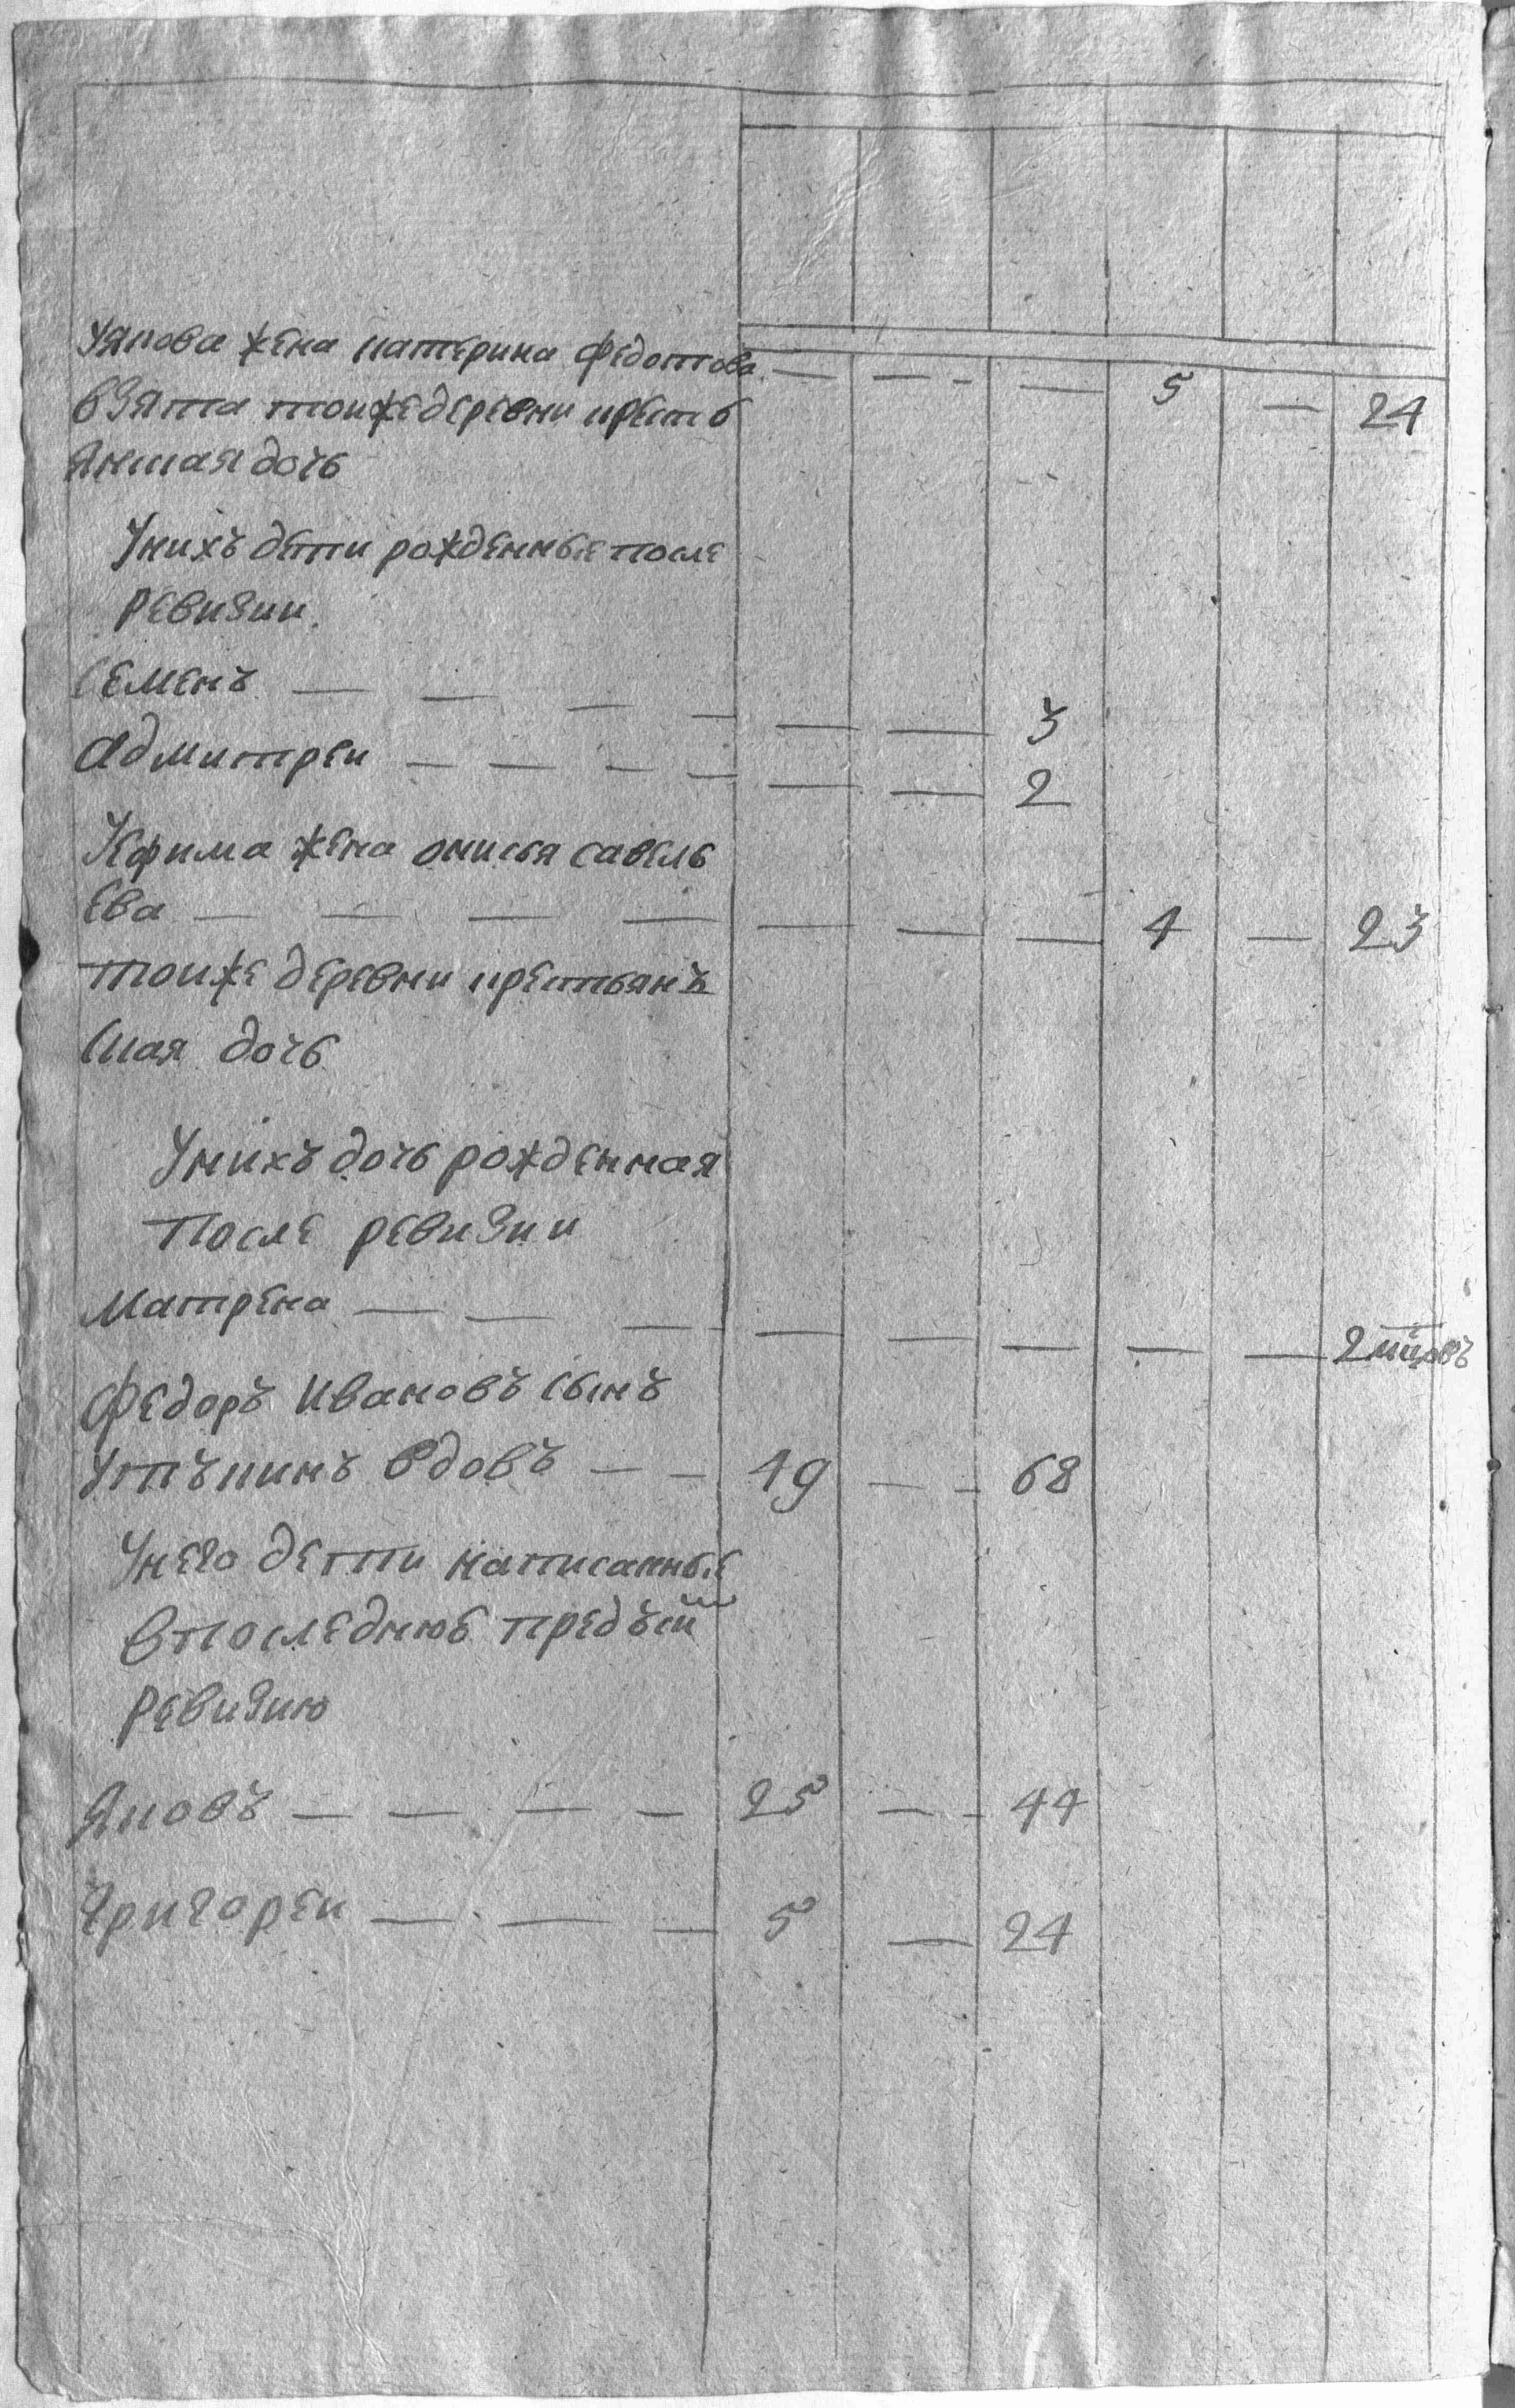 Уякова жена катерина федотова — — — 5 — 24
взята тоиже деревни кресть
янская дочь
Унихъ дети рожденные после
ревизии
Семенъ — — — — — — 3
дмитреи — — — — — — 2
Уефима жена онисья савель
ева — — — — — — — 4 — 23
тоиже деревни крестьянъ
ская дочь
Унихъ дочь рожденная
после ревизии
матрена — — — — — — — — 2 мцовъ
Федоръ Ивановъ сынъ
вдовъ — — 49 — — 68
Унего дети написанные
впоследнюе предъ сй
ревизию
Яковъ — — — — 25 — — 44
Григореи — — — 5 — 24